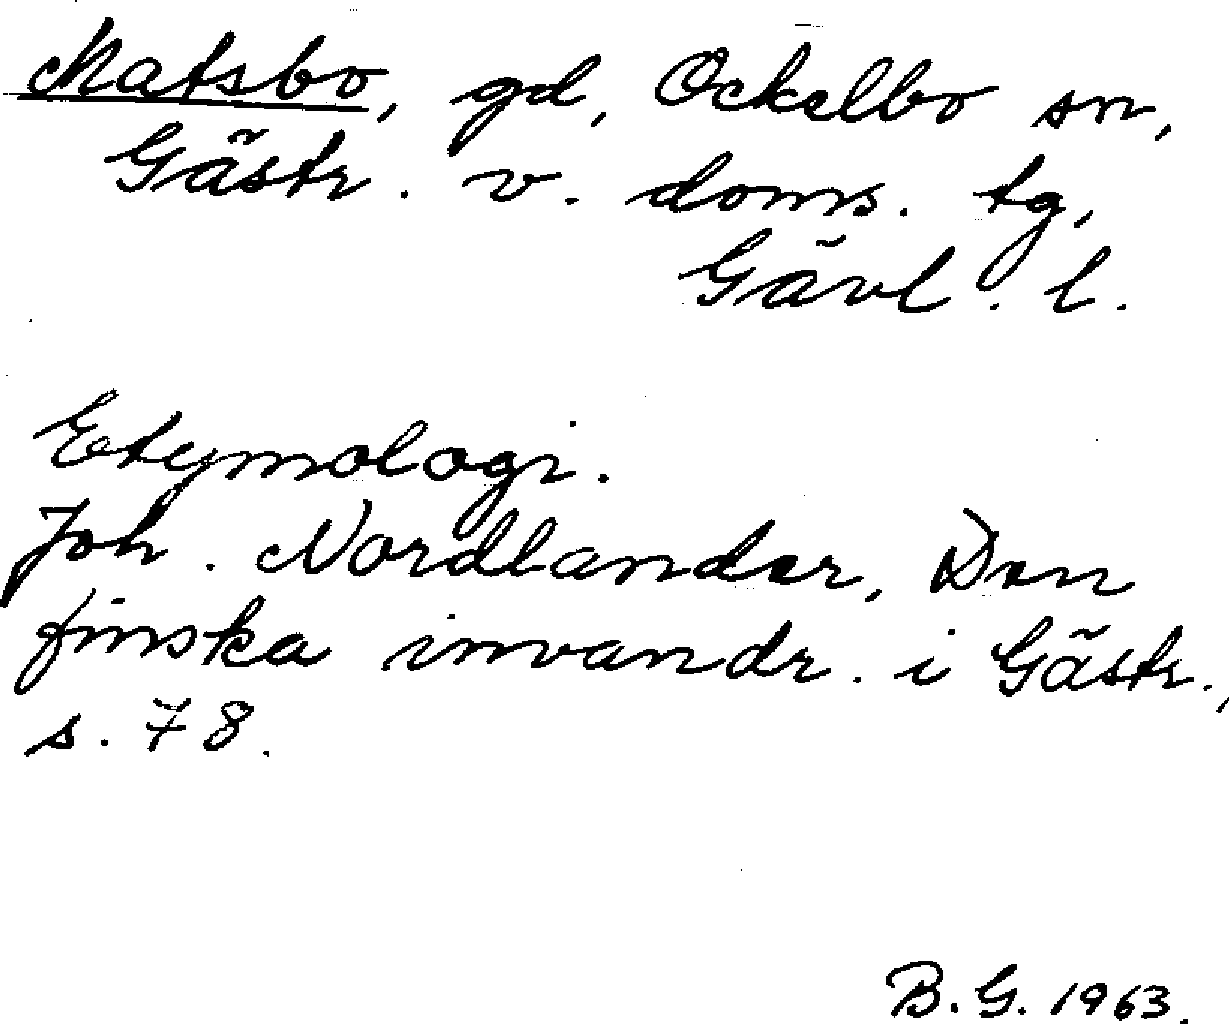 Matsbo, gd, Ockelbo sn,
Gästr. v. doms. tg,
Gävl. l.
Etymologi.
Joh. Nordlander, Den
finska invandr. i Gästr.,
s. 78.
B.G. 1963.